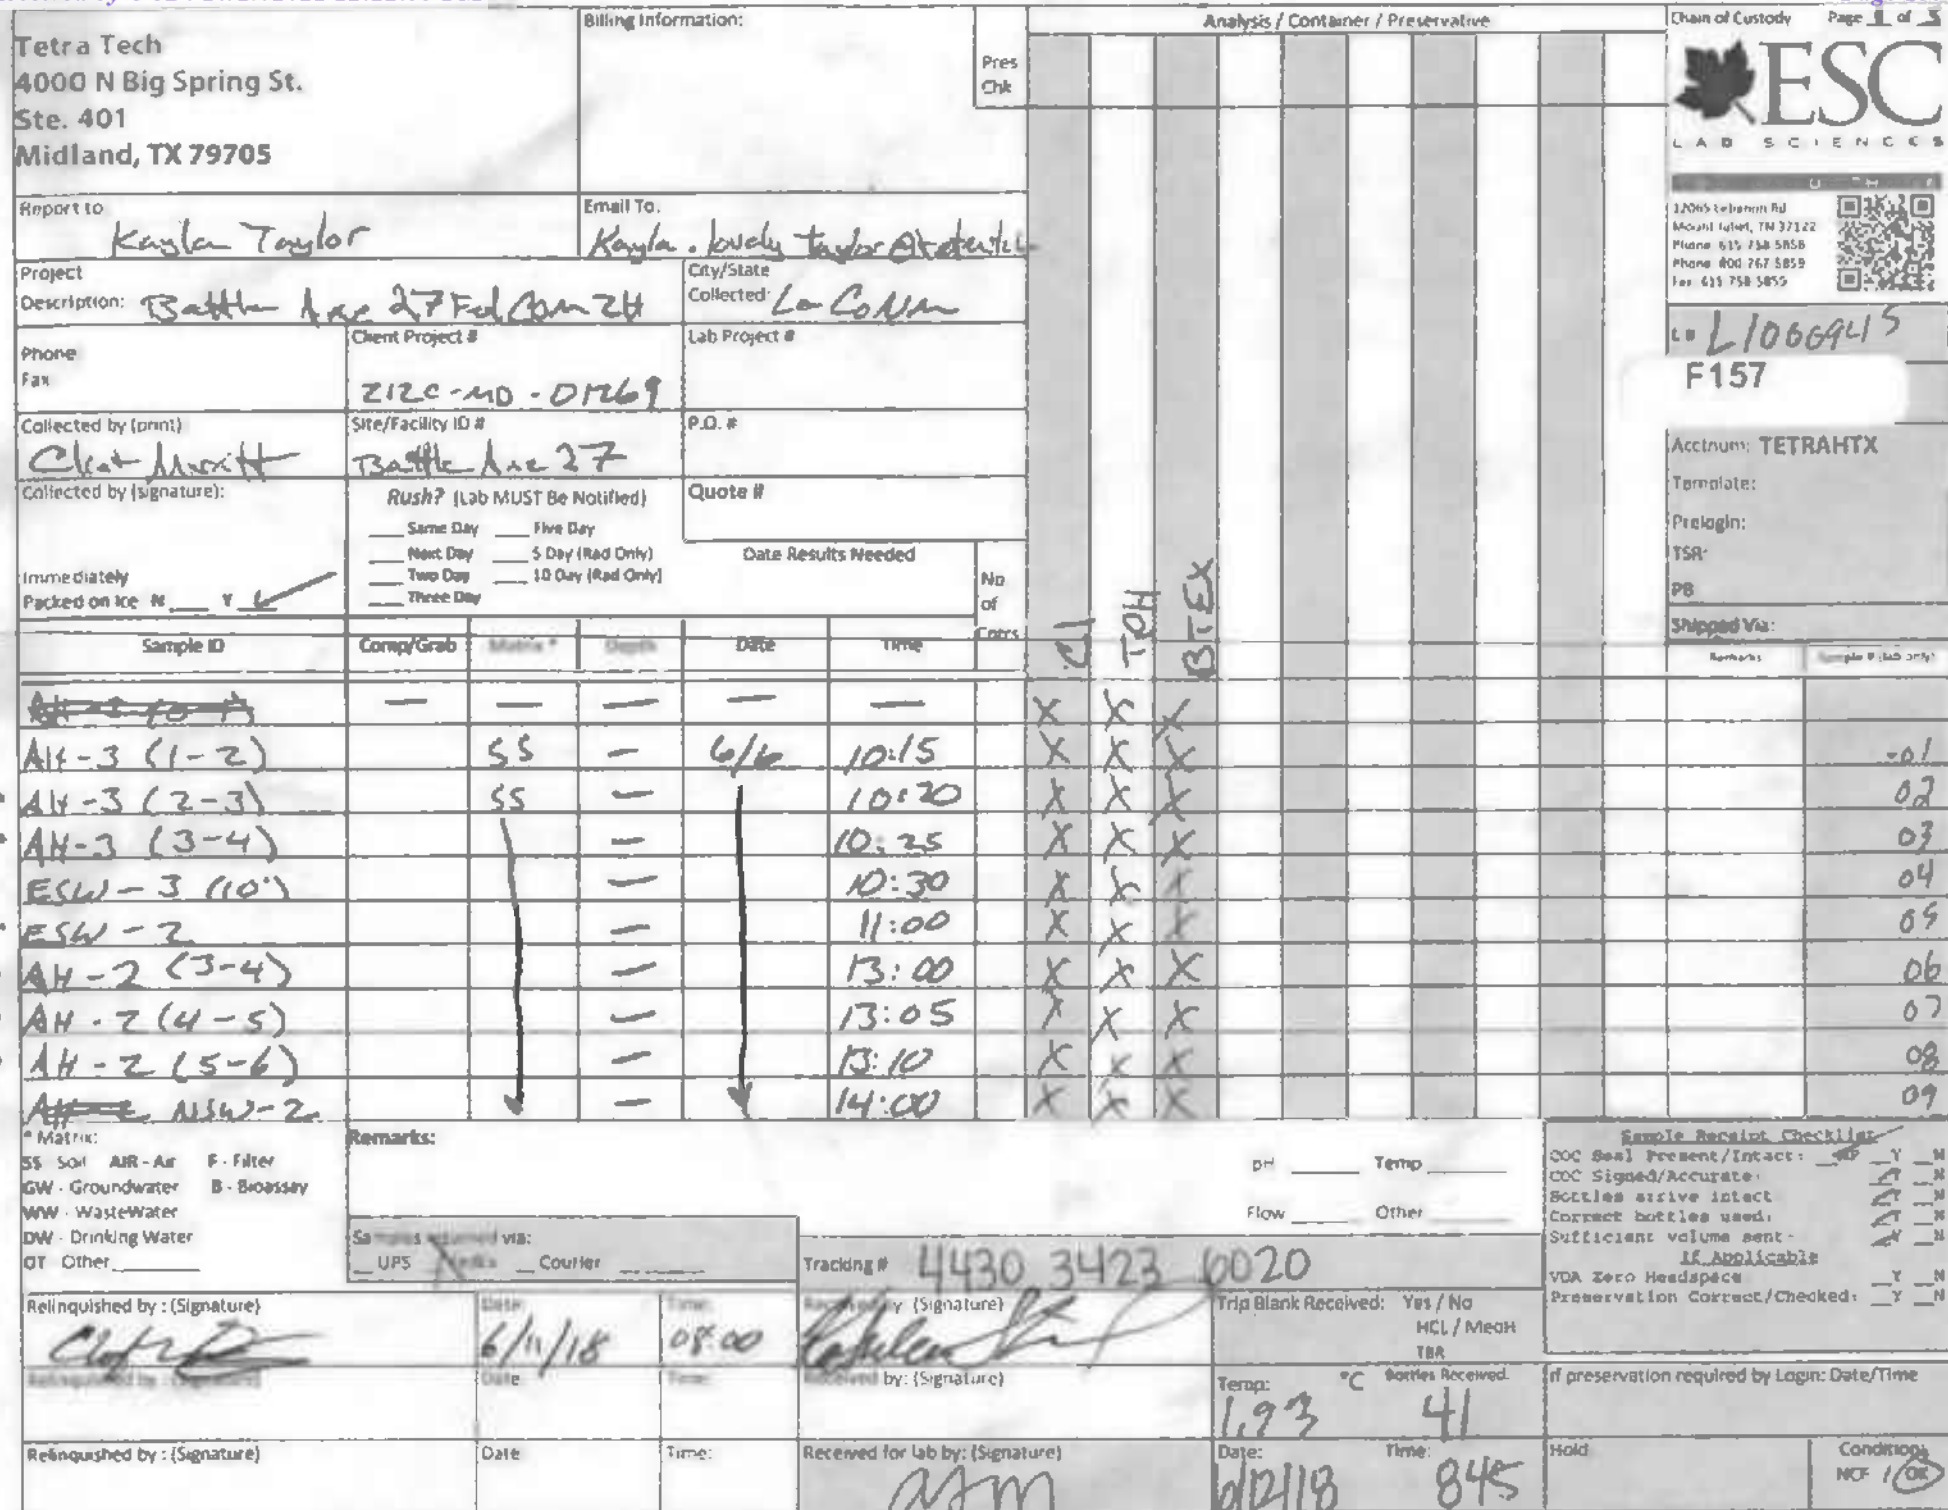 Billing Information:
Analysis / Container / Preservative
Chain of Custody Page 1 of
Tetra Tech
4000 N Big Spring St.
Ste. 401
Midland, TX 79705
Pres
Chk
ESC
LAB SCIENCES
12065 Lebanon Rd
Mount Juliet, TN 37122
Phone 615 758 5858
Phone 800 767 5859
Fax 615 758 5859
Report to
Kayla Taylor
Email To.
Project
Description: Battle Axe 27 Fed Com 2H
City/State
Collected:
Phone
Fax
Client Project #
212C-MD-01269
Lab Project #
L# L1066945
F157
Collected by (print)
Site/Facility ID #
Battle Axe 27
P.O. #
Acctnum: TETRAHTX
Template:
Prelogin:
TSR:
PB
Shipped Via:
Collected by (signature):
Rush? (Lab MUST Be Notified)
Same Day Five Day
Next Day 5 Day (Rad Only)
Two Day 10 Day (Rad Only)
Three Day
Quote #
Date Results Needed
Immediately
Packed on Ice N Y
No
of
Cntrs
Cl
TPH
BTEX
Sample ID Comp/Grab Matrix * Depth Date Time Remarks Sample # (lab only)
— — — — — X X X
AH-3 (1-2) SS — 6/6 10:15 X X X -01
AH-3 (2-3) SS — 10:20 X X X 02
AH-3 (3-4) — 10:25 X X X 03
ESW-3 (10') — 10:30 X X X 04
ESW-2 — 11:00 X X X 05
AH-2 (3-4) — 13:00 X X X 06
AH-2 (4-5) — 13:05 X X X 07
AH-2 (5-6) — 13:10 X X X 08
NSW-2 — 14:00 X X X 09
* Matrix:
SS Soil AIR - Air F - Filter
GW - Groundwater B - Bioassay
WW - WasteWater
DW - Drinking Water
OT Other
Remarks:
pH Temp
Flow Other
Sample Receipt Checklist
COC Seal Present/Intact: NP Y N
COC Signed/Accurate: Y N
Bottles arrive intact Y N
Correct bottles used: Y N
Sufficient volume sent: Y N
If Applicable
VOA Zero Headspace Y N
Preservation Correct/Checked: Y N
Samples returned via:
UPS FedEx Courier
Tracking # 4430 3423 6020
Relinquished by : (Signature)
Date: 6/11/18
Time: 08:00
Received by: (Signature)
Trip Blank Received: Yes / No
HCL / MeoH
TBR
Relinquished by : (Signature)
Date
Time:
Received by: (Signature)
Temp: °C Bottles Received:
41
If preservation required by Login: Date/Time
Relinquished by : (Signature)
Date
Time:
Received for lab by: (Signature)
Date: 6/12/18
Time: 845
Hold
Condition:
NCF / OK